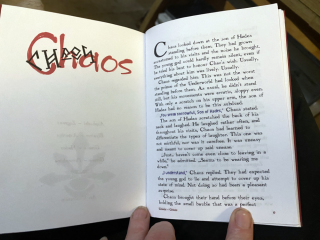 Chaos
Chaos looked down at the son of Hades
standing before them. They had grown
accustomed to his visits and the noise he brought.
The young god could hardly remain silent, even if
he tried his best to honour Chaos's wish. Usually,
everything about him was lively. Usually.
Chaos regarded him. This was not the worst
the prince of the Underworld had looked when
standing before them. As usual, he didn't stand
still, but his movements were erratic, sloppy even.
With only a scratch on his upper arm, the son of
Hades had no reason to be this subdued.
"You seem successful, Son of Hades," Chaos stated.
The son of Hades scratched the back of his
neck and laughed. He laughed rather often, and
throughout his visits, Chaos had learned to
differentiate the types of laughter. This one was
not mirthful, nor was it carefree. It was uneasy
and meant to cover up said unease.
"Just: haven't come even close to leaving in a
while," he admitted. "Seems to be wearing me
down."
"I understand," Chaos replied. They had expected
the young god to lie and attempt to cover up his
state of mind. Not doing so had been a pleasant
surprise.
Chaos brought their hand before their eyes,
holding the small bottle that was a perfect